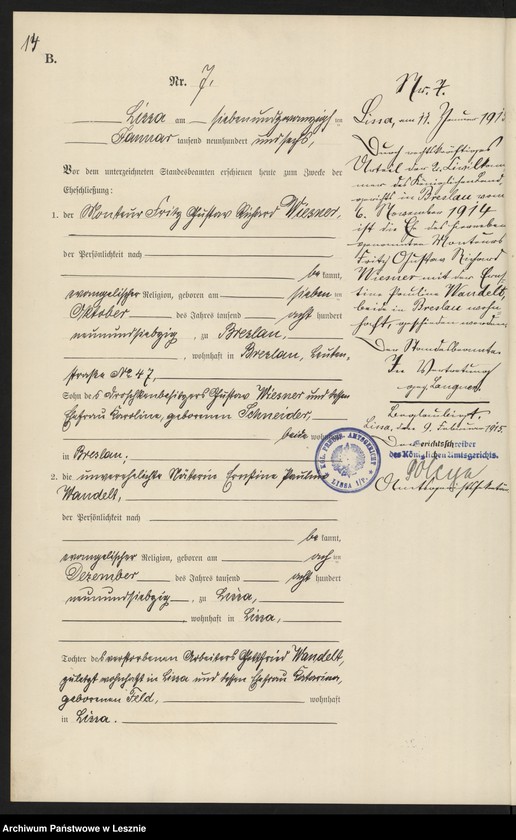 14
B.
Nr. 7.
Lissa am siebenundzwanzigsten
Januar tausend neunhundert undsechs,
Vor dem unterzeichneten Standesbeamten erschienen heute zum Zwecke der
Eheschließung:
1. der Monteur Fritz Gustav Richard Wiesner,
der Persönlichkeit nach
bekannt,
evangelischer Religion, geboren am sieben ten
Oktober des Jahres tausend acht hundert
neunundsiebzig, zu Breslau,
, wohnhaft in Breslau, Leuten-
straße No. 47,
Sohn des Droschkenbesitzers Gustav Wiesner und dessen
Ehefrau Karoline, geborenen Schneider,
beide wohnhaft
in Breslau,
2. die unverehelichte Näterin Ernstine Pauline
Wandelt,
der Persönlichkeit nach
bekannt,
evangelischer Religion, geboren am ach ten
Dezember des Jahres tausend acht hundert
neunundsiebzig, zu Lissa,
wohnhaft in Lissa,
Tochter des verstorbenen Arbeiters Gottfried Wandelt,
zuletzt wohnhaft in Lissa und dessen Ehefrau
geborenen Feld, wohnhaft
in Lissa.
Nr. 7.
Lissa, am 11. Januar 1915
Durch rechtskräftiges
Urteil der 2. Zivilkam-
mer des Königlichen Land-
gerichts in Breslau vom
6. November 1914
ist die Ehe des
genannten Monteurs
Fritz Gustav Richard
Wiesner mit der Erns-
tine Pauline Wandelt,
beide in Breslau wohn-
haft, geschieden worden.
Der Standesbeamte.
In Vertretung
gez. Langner.
Beglaubigt.
Lissa, den 9. Februar 1915.
Der Gerichtsschreiber
des Königlichen Amtsgerichts.
KGL. PREUSS. AMTSGERICHT
* LISSA i/P. *
Archiwum Państwowe w Lesznie